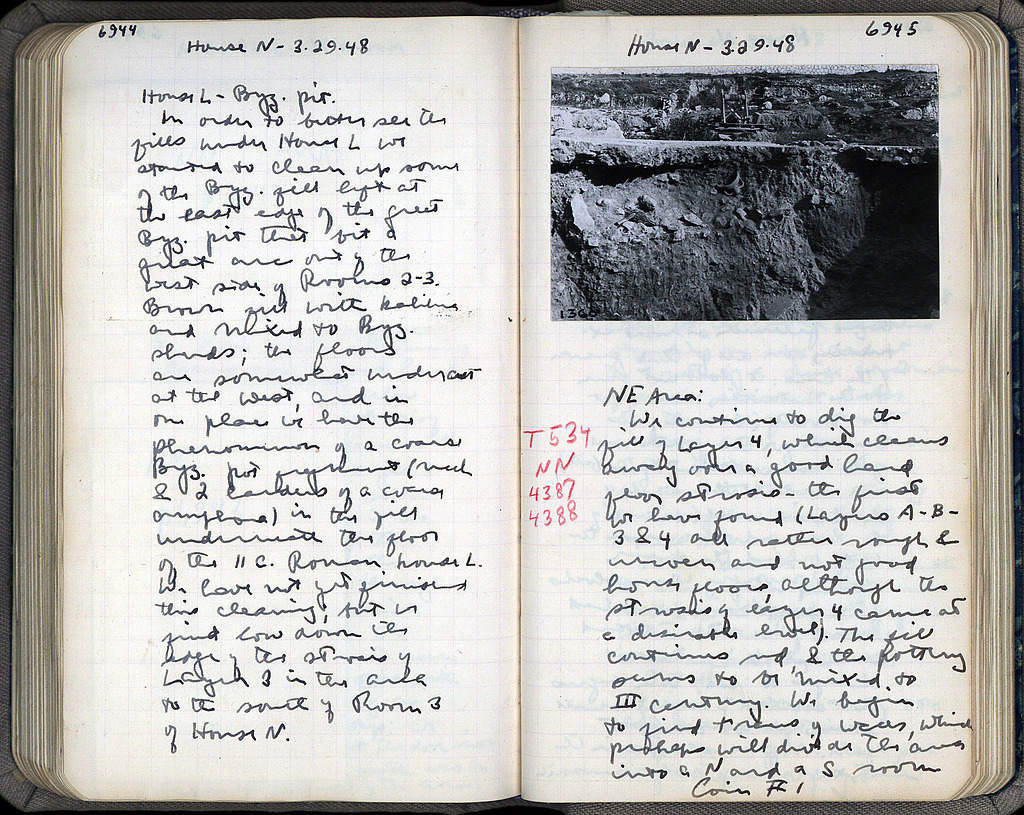 6944
House N - 3.29.48
House L - Byz. pit.
In order to better see the
fills under House L we
started to clean up some
of the Byz. fill left at
the east edge of the great
Byz. pit that bit a
great arc out of the
west side of Rooms 2-3.
Brown fill with
and mixed to Byz.
sherds; the floors
are somewhat undercut
at the west, and in
one place we have the
phenominon of a coarse
Byz. pot fragment (neck
& 2 handles of a coarse
amphora) in the fill
underneath the floor
of the II C. Roman house L.
We have not yet finished
this cleaning, but we
find low down the
edge of the strosis of
Layer 3 in the area
to the south of Room 3
of House N.
6945
House N - 3.29.48
NE Area:
We continue to dig the
fill of Layer 4, which cleans
away over a good hard
floor strosis - the first
we have found (Layers A-B-
3 & 4 all rather rough &
uneven and not good
house floors, although the
strosis of layer 4 came at
a desirable level). The fill
continues red & the pottery
seems to be mixed to
III century. We begin
to find traces of walls, which
perhaps will divide the area
into a N and a S room
Coin # 1
T 534
NN
4387
4388